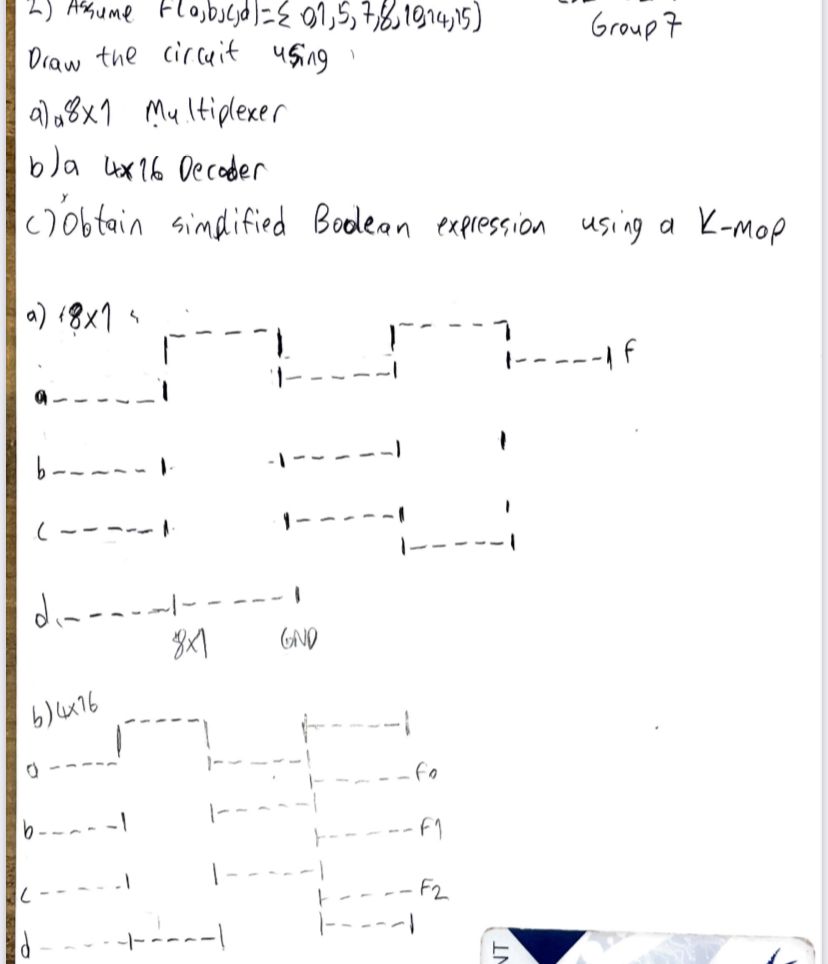 2) Assume F(a,b,c,d)=Σ 0,1,5,7,8,10,14,15)
Group 7
Draw the circuit using
a) a 8x1 Multiplexer
b) a 4x16 Decoder
c) Obtain simplified Boolean expression using a K-mop
a) 8x1
a
F
b
c
d
8x1 GND
b) 4x16
a
F0
b
F1
c
F2
d
NT